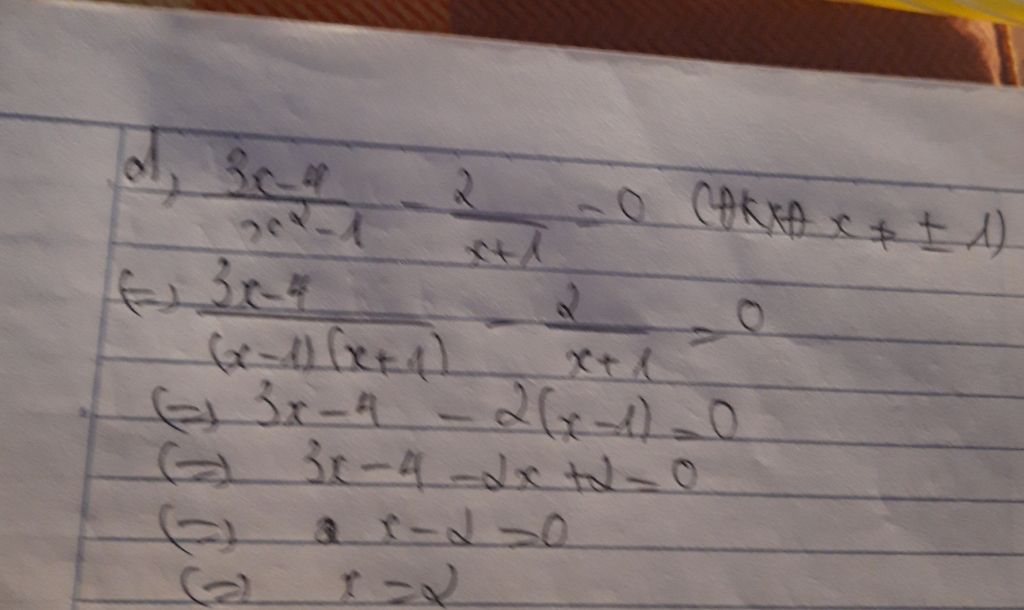 d, \frac{3x-4}{x^2-1} - \frac{2}{x+1} = 0 (ĐKXĐ x ≠ ± 1)
(=) \frac{3x-4}{(x-1)(x+1)} - \frac{2}{x+1} = 0
(=) 3x-4 - 2(x-1) = 0
(=) 3x-4-2x+2=0
(=) x-2=0
(=) x=2